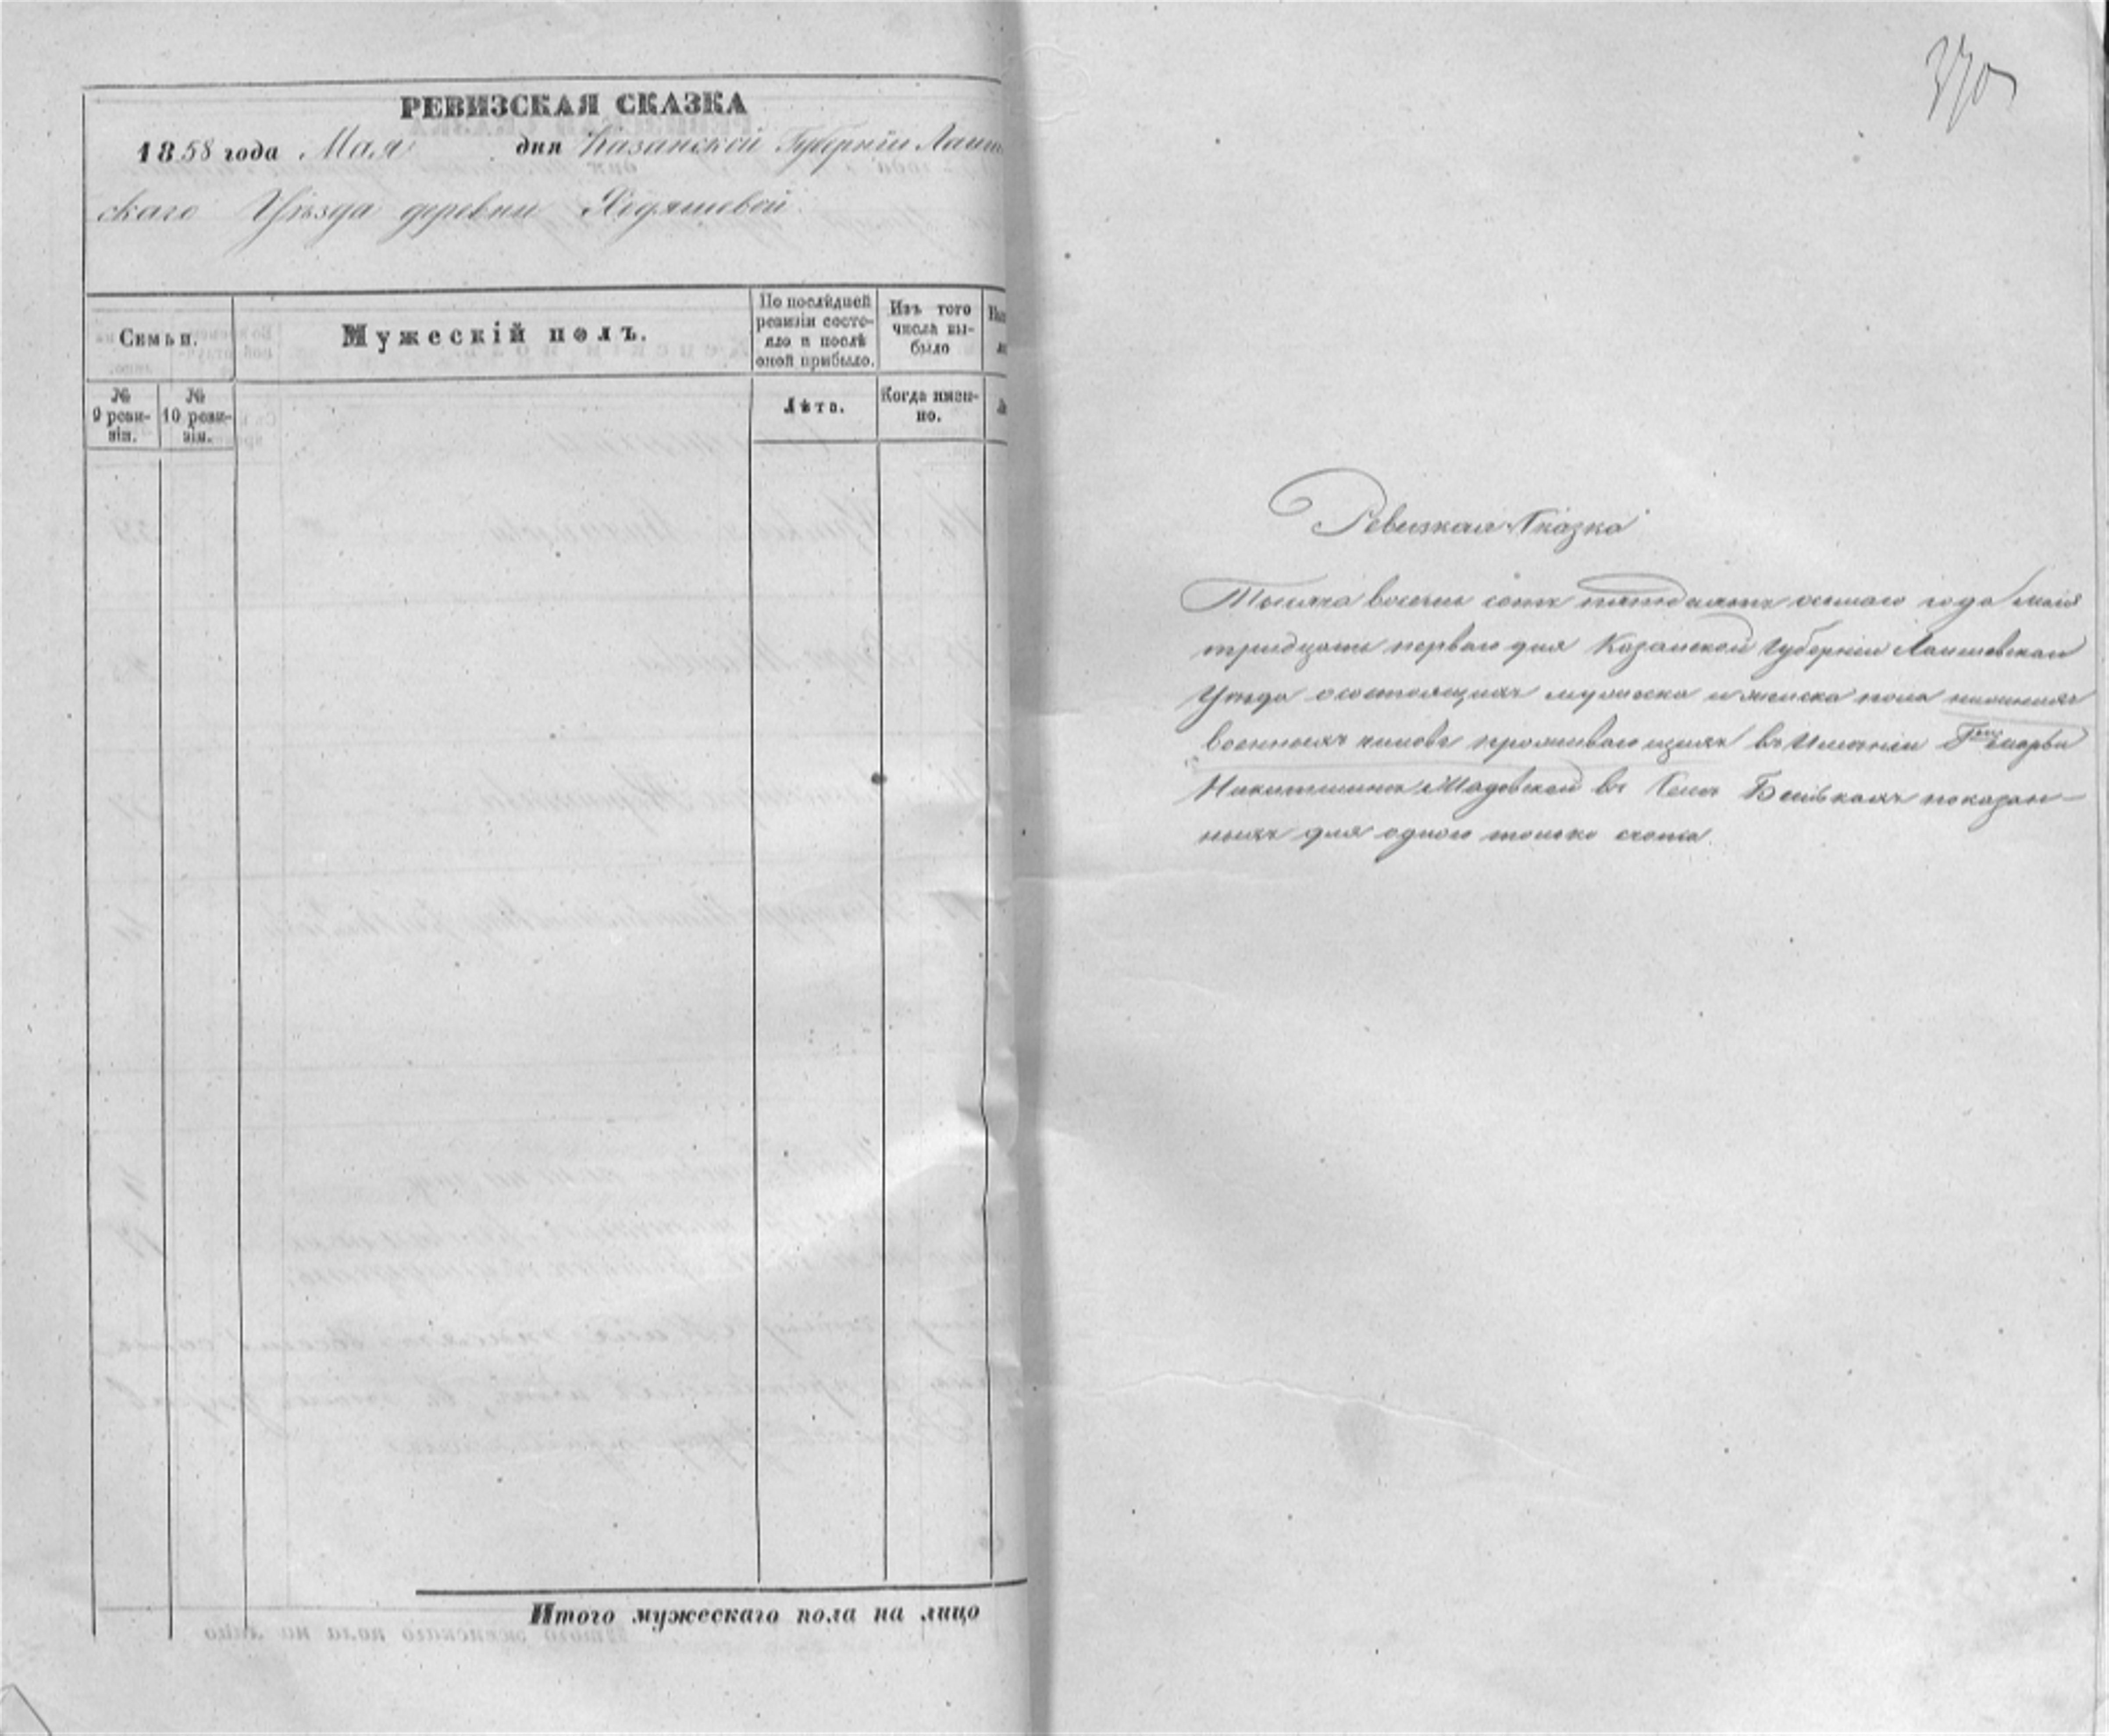 РЕВИЗСКАЯ СКАЗКА
1858 года Мая дня Казанской Губерніи Лаиш
скаго Уѣзда деревни
Семьи.
Мужескій полъ.
По послѣдней ревизіи состо-
яло и послѣ оной прибыло.
Изъ того числа вы-
было
№ 9 реви-
зіи.
№ 10 реви-
зіи.
Лѣта.
Когда имен-
но.
Итого мужескаго пола на лицо
370
Ревизкая Сказка
Тысяча восемь сотъ пятдесятъ осьмаго года мая
тридцать перваго дня Казанской Губерніи Лаишевскаго
Уѣзда о состоящихъ мужеска и женска пола нижнихъ
военныхъ чиновъ проживающихъ въ Имѣніи Гжи Марьи
въ Селѣ показан-
ныхъ для одного только счета.